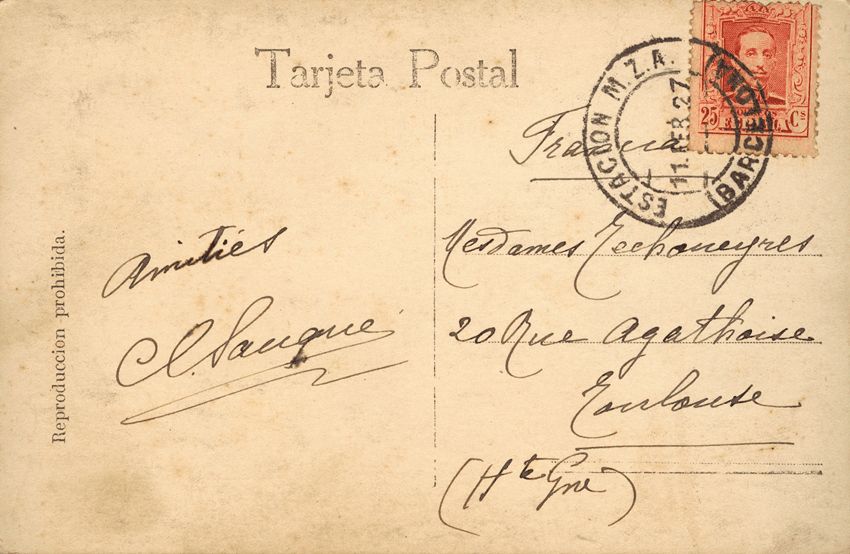 Tarjeta Postal
25 Cs
ESPAÑA
ESTACION M.Z.A. (BARCELONA)
11.FEB.27
Francia
Mesdames Techoneyres
20 Rue Agathoise
Toulouse
(Hte Gne)
Amitiés
Reproduccion prohibida.